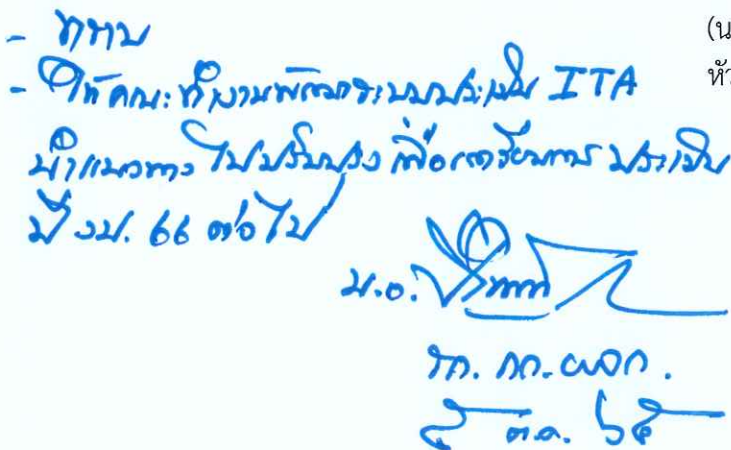 - ทราบ
(น
- ให้คณะทำงานพัฒนาระบบประเมิน ITA
หัว
นำแนวทาง ไปปรับปรุง เพื่อเตรียมการ ประเมิน
ปี งป. 66 ต่อไป
น.อ.
รก.
๕ ต.ค. ๖๕